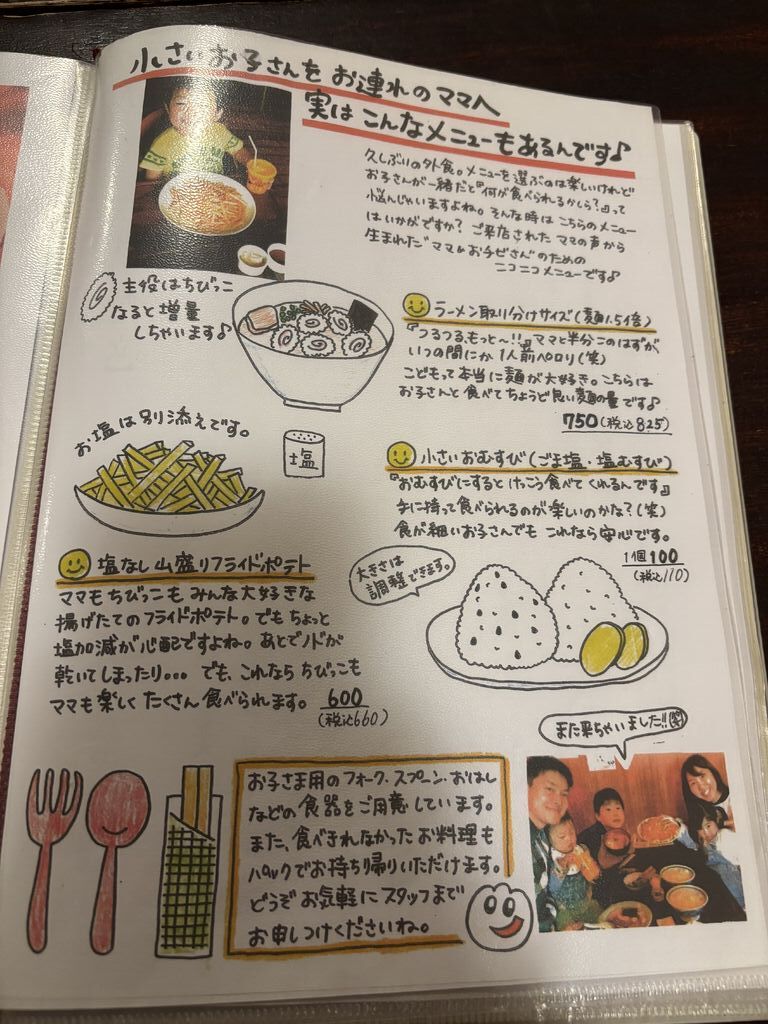 小さいお子さんをお連れのママへ
実はこんなメニューもあるんです♪
久しぶりの外食。メニューを選ぶのは楽しいけれど
お子さんが一緒だと『何が食べられるかしら?』って
悩んじゃいますよね。そんな時はこちらのメニュー
はいかがですか? ご来店されたママの声から
生まれた"ママ&お子ゼさん"のための
ニコニコメニューです♪
主役はちびっこ
なると増量
しちゃいます♪
ラーメン取り分けサイズ(麺1.5倍)
『つるつる、もっと〜!!』ママと半分このはずが
いつの間にか1人前ペロリ(笑)
こどもって本当に麺が大好き。こちらは
お子さんと食べてちょうど良い麺の量です♪
750(税込825)
お塩は別添えです。
塩
小さいおむすび(ごま塩・塩むすび)
『おむすびにするとけっこう食べてくれるんです』
手に持って食べられるのが楽しいのかな?(笑)
食が細いお子さんでもこれなら安心です。
1個100
(税込110)
大きさは
調整できます。
塩なし山盛りフライドポテト
ママもちびっこもみんな大好きな
揚げたてのフライドポテト。でもちょっと
塩加減が心配ですよね。あとでノドが
乾いてしまったり... でも、これならちびっこも
ママも楽しくたくさん食べられます。 600
(税込660)
お子さま用のフォーク、スプーン・おはし
などの食器をご用意しています。
また、食べきれなかったお料理も
パックでお持ち帰りいただけます。
どうぞお気軽にスタッフまで
お申しつけくださいね。
また来ちゃいました!!(笑)